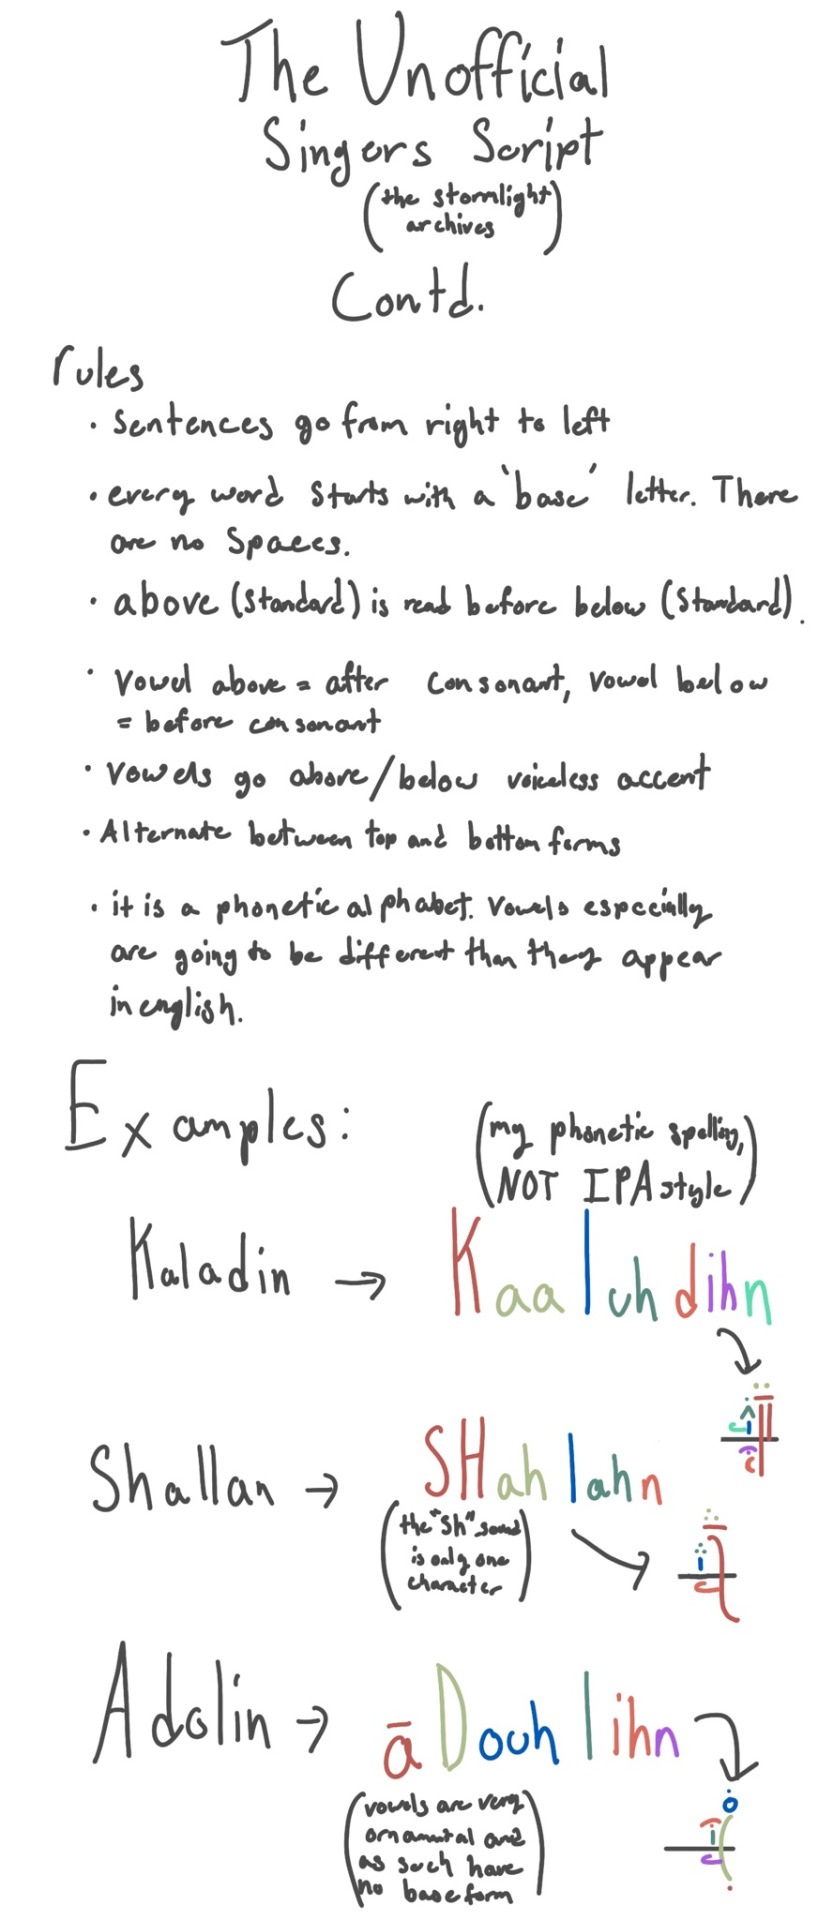 The Unofficial
Singers Script
(the stormlight
archives)
Contd.
rules
· Sentences go from right to left
· every word starts with a 'base' letter. There
are no Spaces.
· above (standard) is read before below (standard).
· Vowel above = after consonant, vowel below
= before consonant
· vowels go above/below voiceless accent
· Alternate between top and bottom forms
· it is a phonetic alphabet. Vowels especially
are going to be different than they appear
in english.
Examples:
(my phonetic spelling,
NOT IPA style)
Kaladin → Kaaluhdihn
Shallan → SHahlahn
(the "Sh" sound
is only one
character)
Adolin → āDouhlihn
(vowels are very
ornamental and
as such have
no base form)